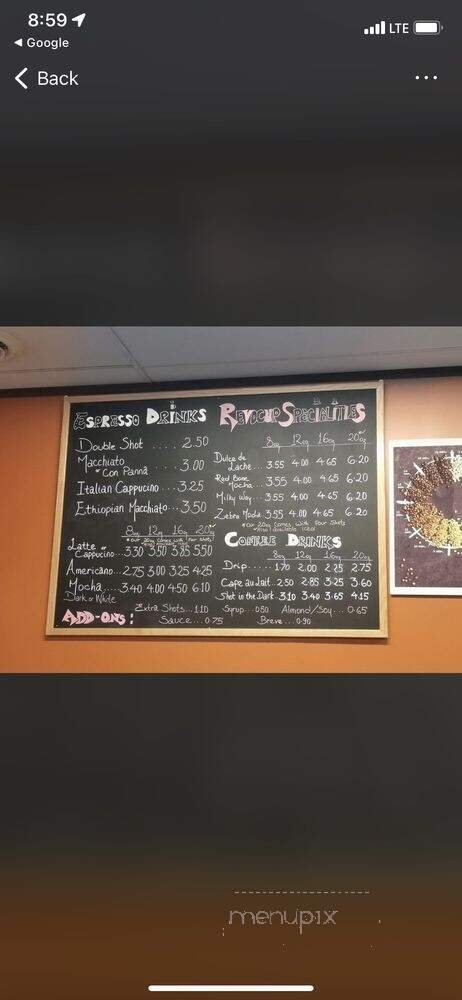 8:59
LTE
Google
Back
Espresso Drinks
Double Shot .... 2.50
Macchiato
or Con Panna ... 3.00
Italian Cappucino... 3.25
Ethiopian Macchiato... 3.50
8oz 12oz 16oz 20oz
* Our 20oz Comes with Four Shots
Latte or
Cappuccino... 3.30 3.50 3.85 5.50
Americano... 2.75 3.00 3.25 4.25
Mocha.... 3.40 4.00 4.50 6.10
Dark or White
Revocup Specialities
8oz 12oz 16oz 20oz
Dulce de
Lache... 3.55 4.00 4.65 6.20
Red Bone
Mocha... 3.55 4.00 4.65 6.20
Milky Way... 3.55 4.00 4.65 6.20
Zebra Mocha 3.55 4.00 4.65 6.20
* Our 20oz Comes with Four Shots
* Also Available Iced
Coffee Drinks
8oz 12oz 16oz 20oz
Drip...... 1.70 2.00 2.25 2.75
Cafe au lait.. 2.50 2.85 3.25 3.60
Shot in the Dark.. 3.10 3.40 3.65 4.15
Add-ons:
Extra Shots... 1.10 Syrup... 0.50 Almond/Soy... 0.65
Sauce... 0.75 Breve... 0.90
menupix